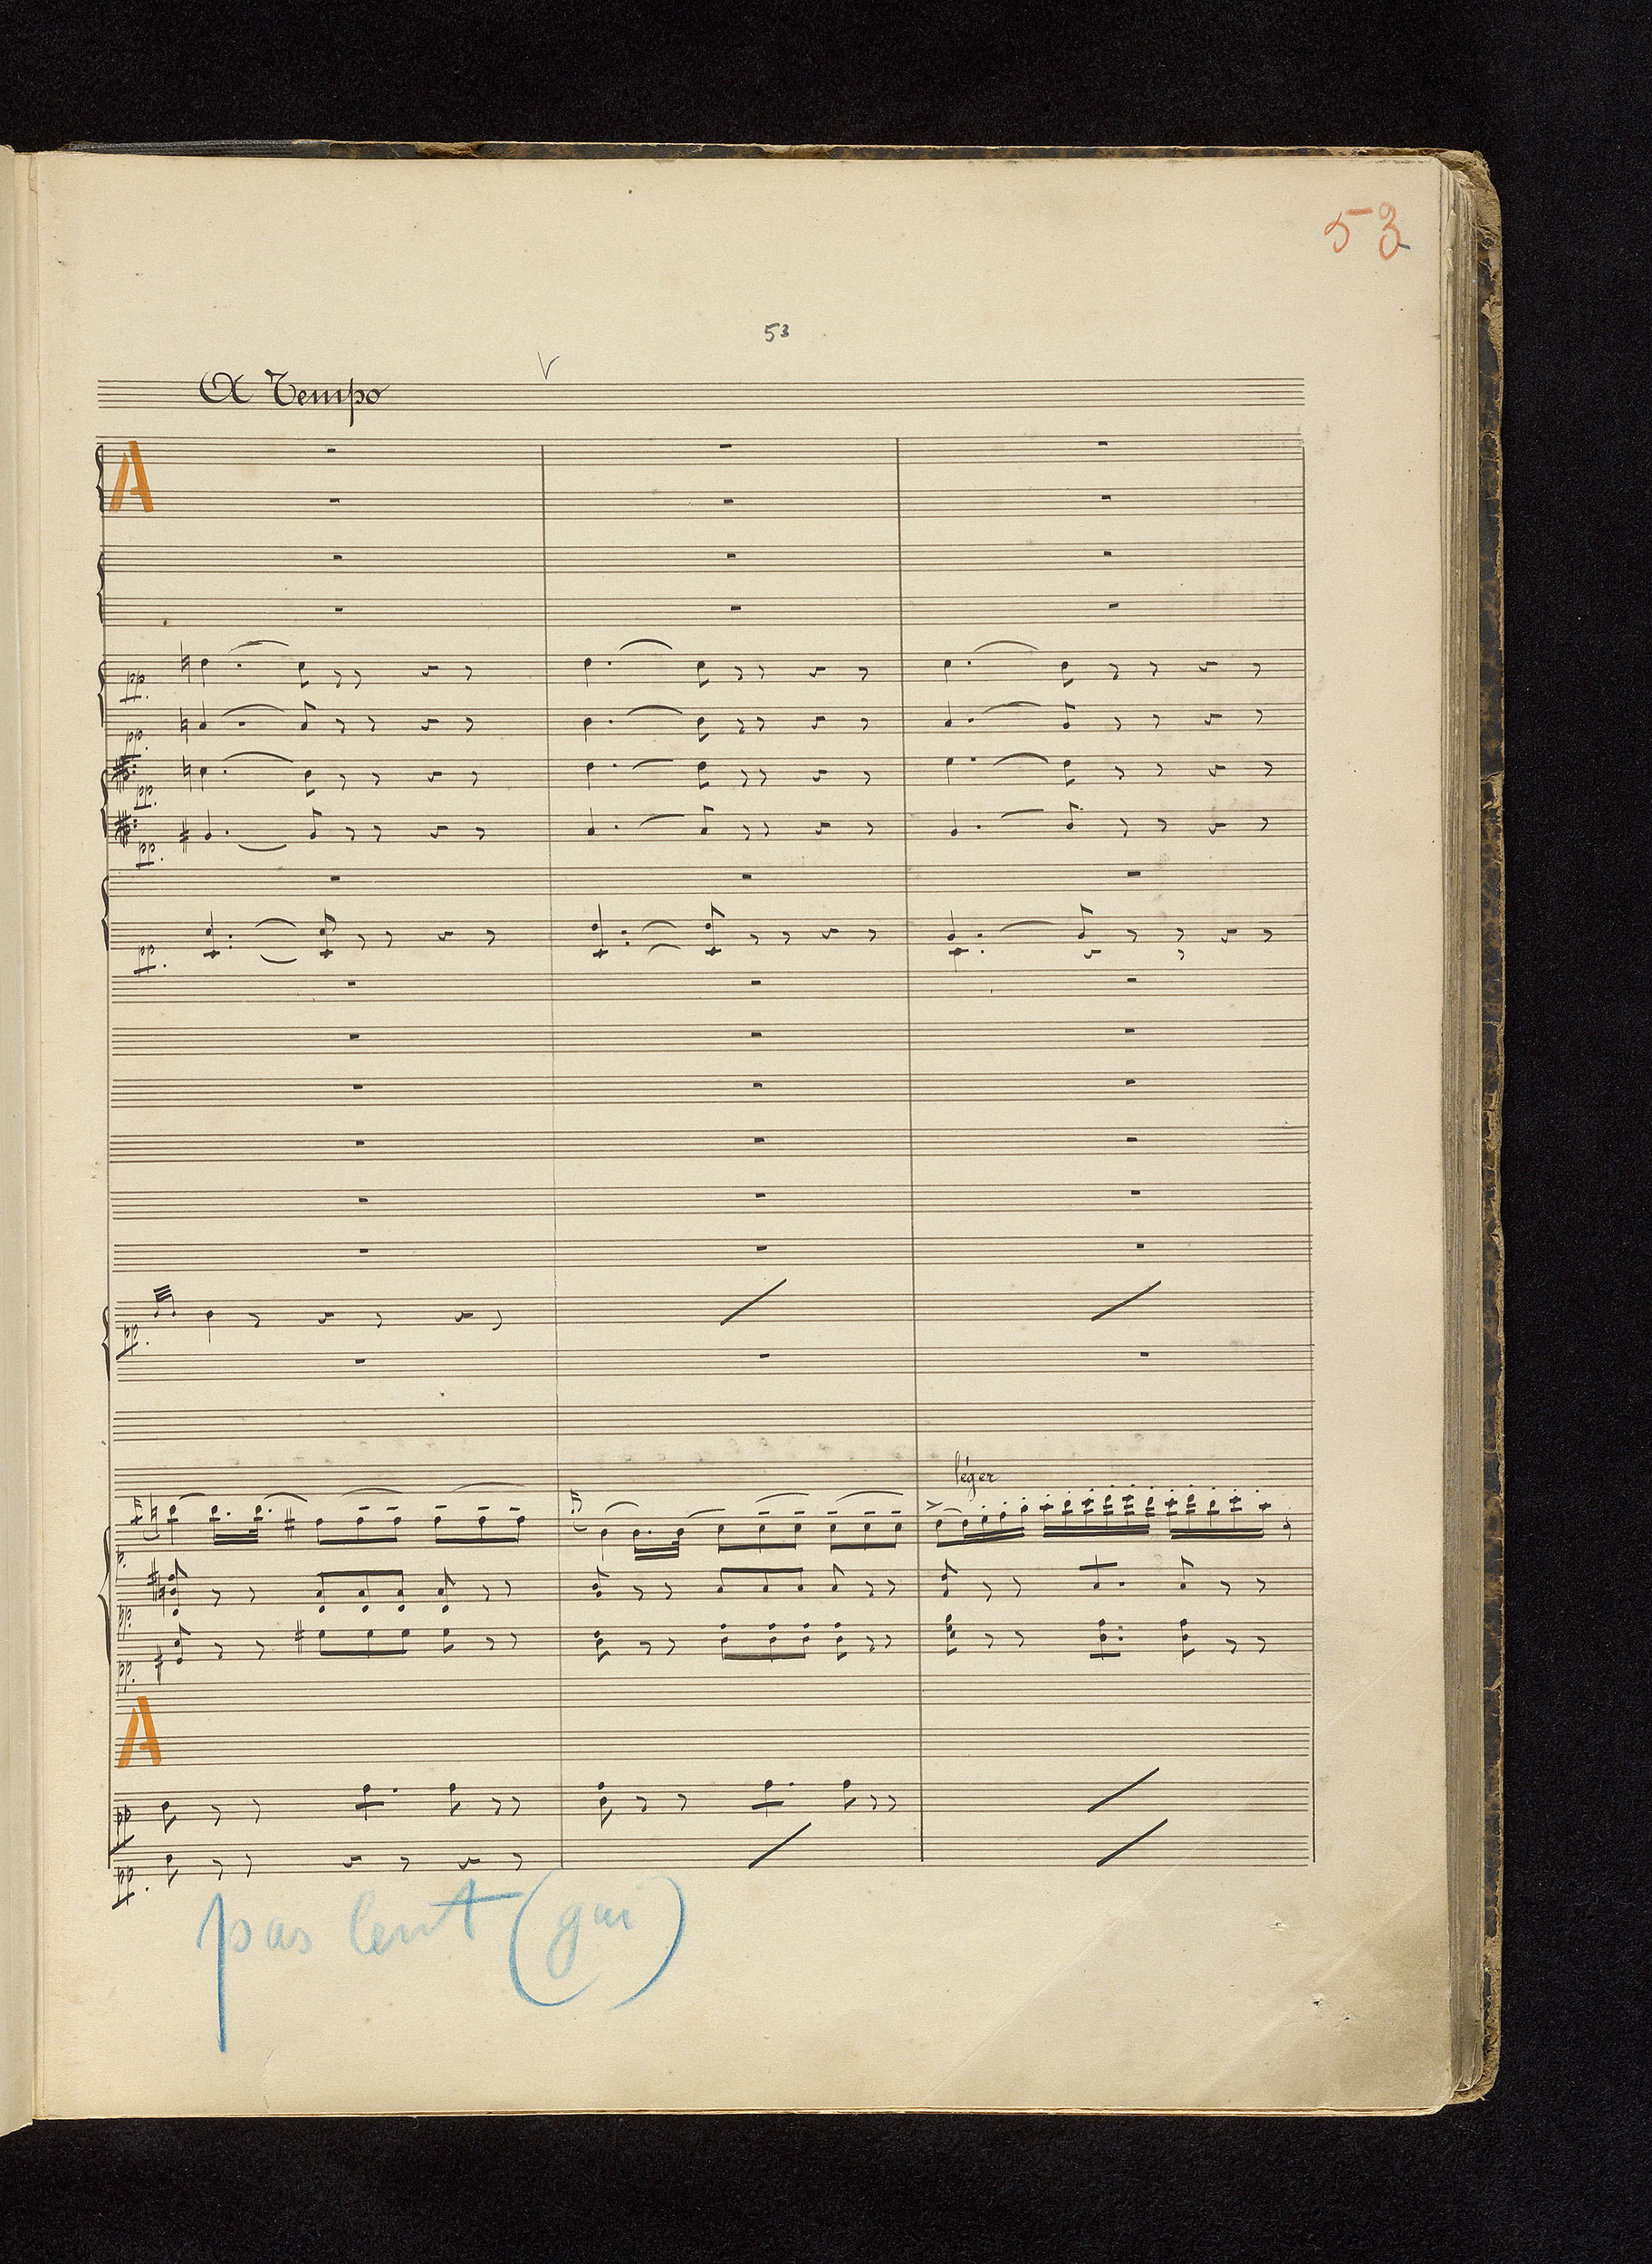 53
53
A Tempo
A
pp.
pp.
pp.
pp.
pp.
pp.
léger
p.
pp.
pp.
A
pp
pp.
pas lent (gai)